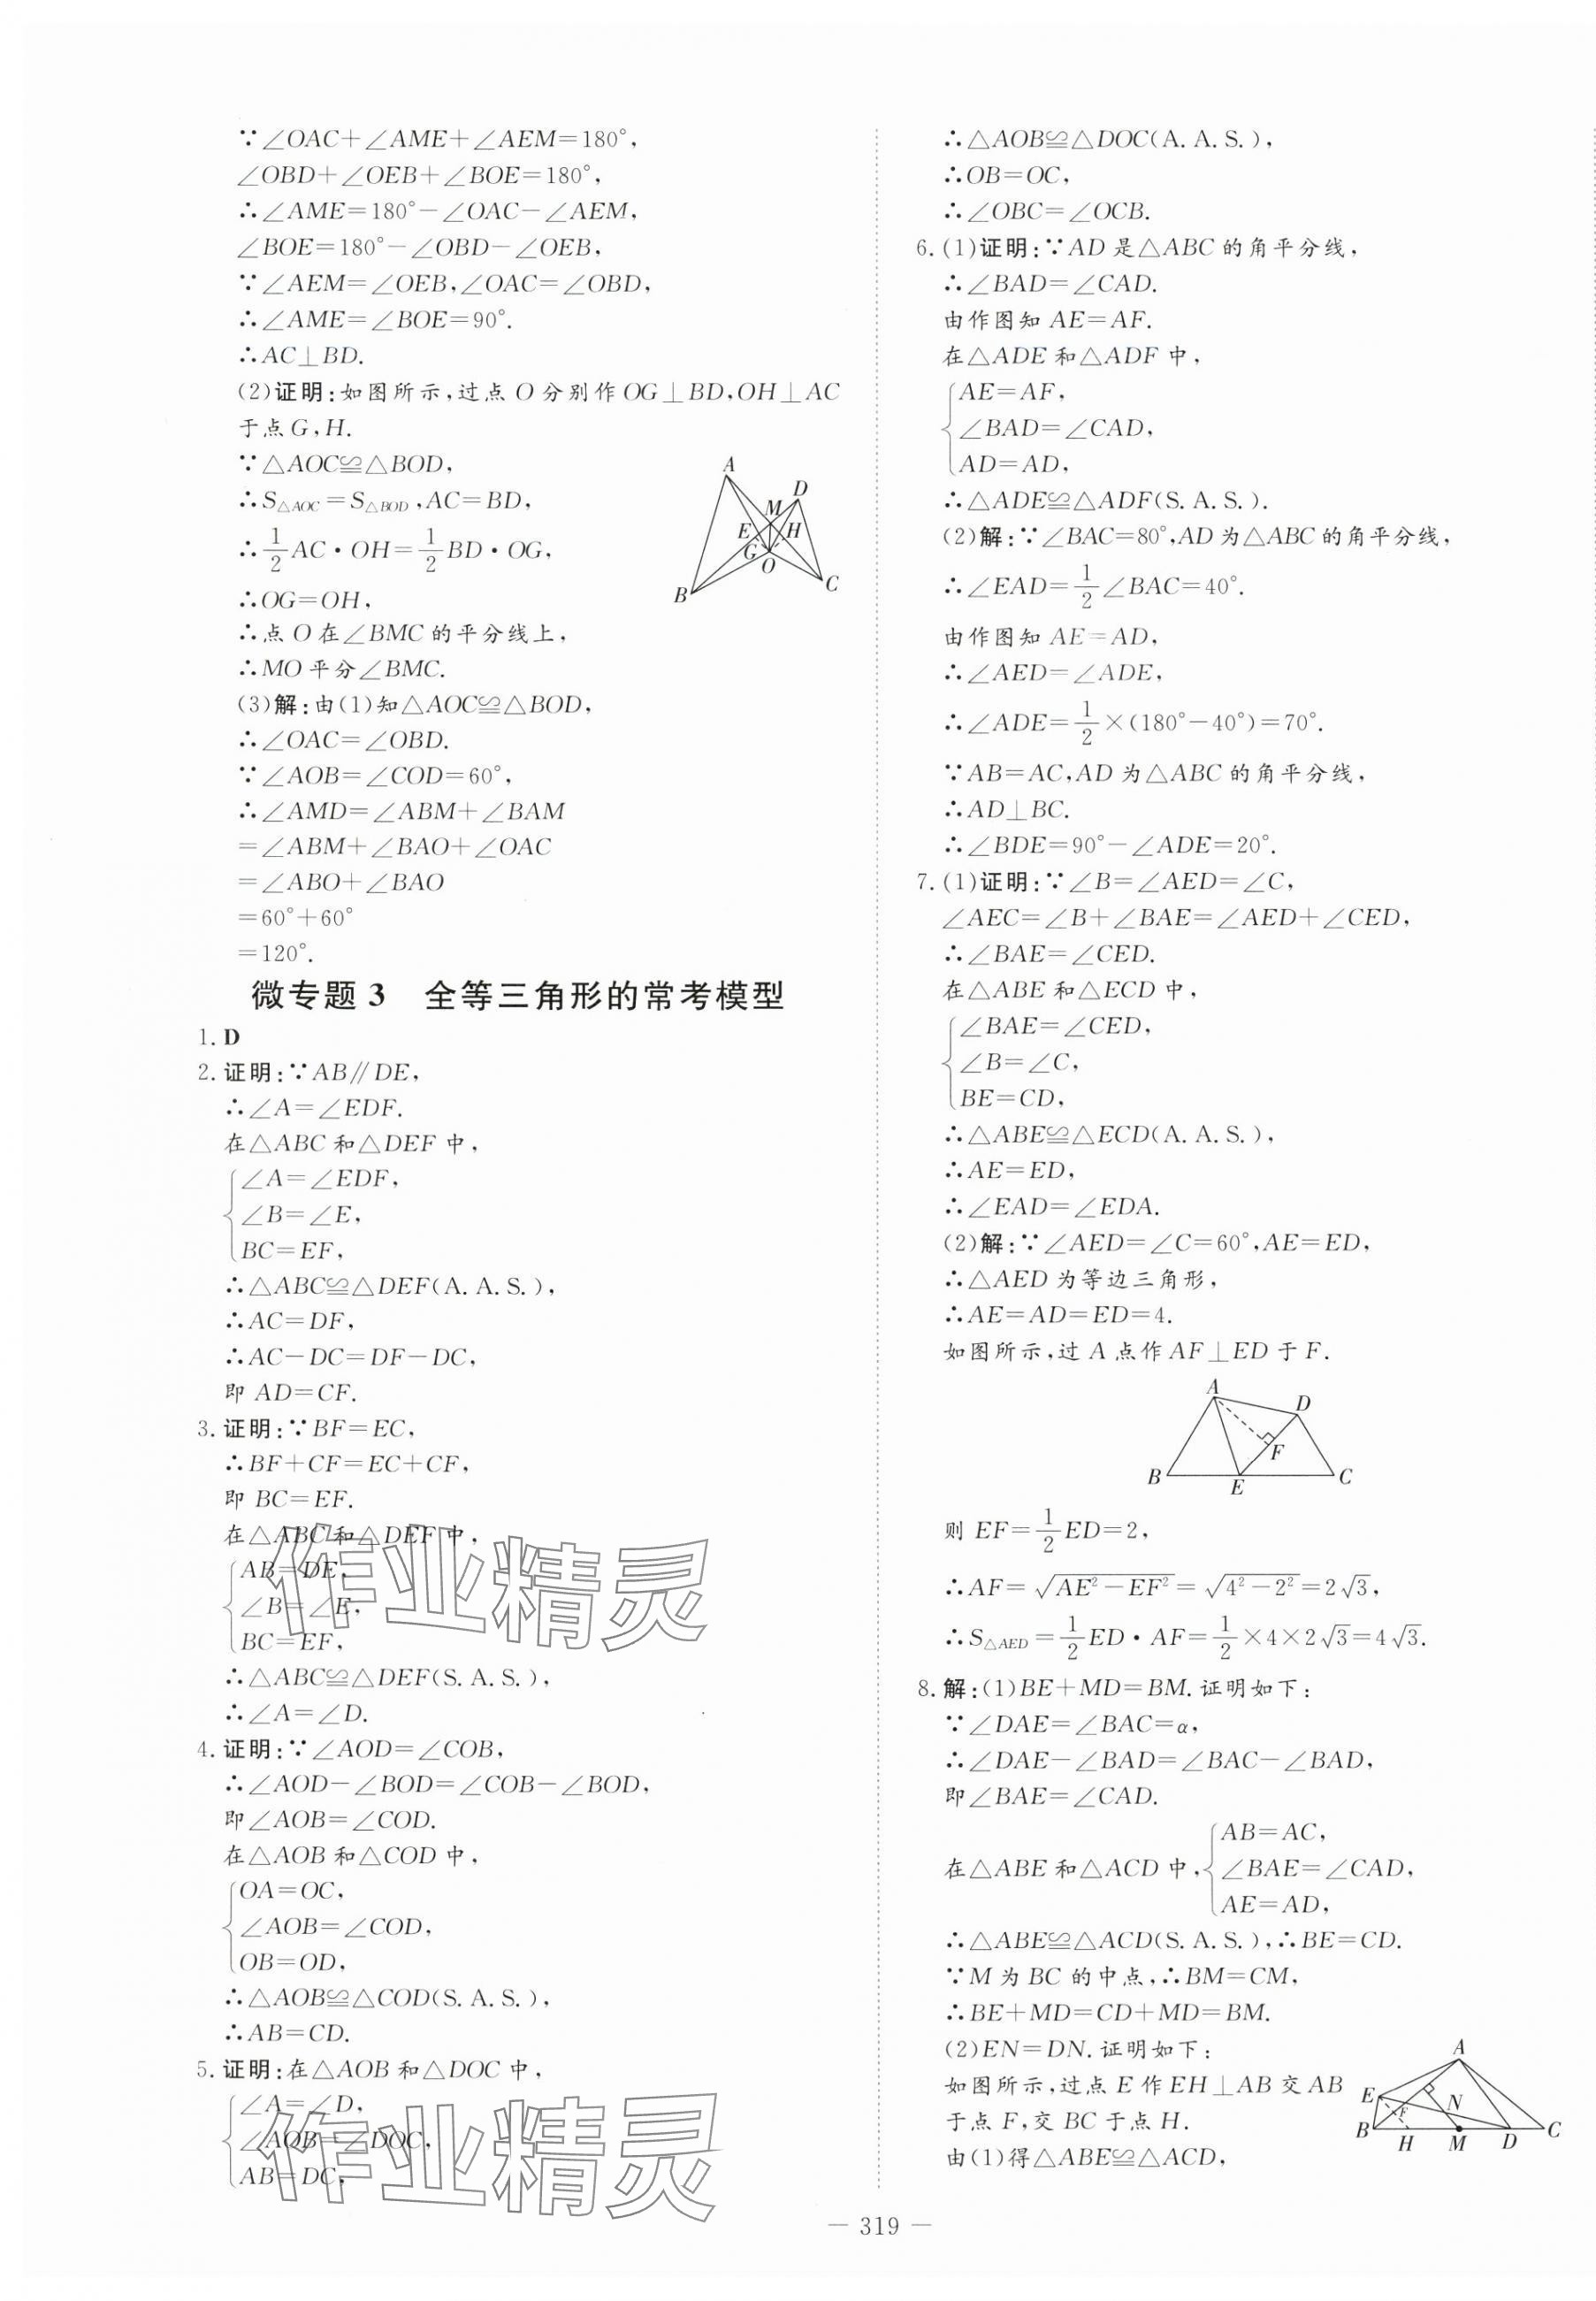 ∵∠OAC+∠AME+∠AEM=180°,
∠OBD+∠OEB+∠BOE=180°,
∴∠AME=180°-∠OAC-∠AEM,
∠BOE=180°-∠OBD-∠OEB,
∵∠AEM=∠OEB,∠OAC=∠OBD,
∴∠AME=∠BOE=90°.
∴AC⊥BD.
(2)证明:如图所示,过点O分别作OG⊥BD,OH⊥AC
于点G,H.
∵△AOC≌△BOD,
∴S△AOC=S△BOD,AC=BD,
∴1/2AC·OH=1/2BD·OG,
∴OG=OH,
∴点O在∠BMC的平分线上,
∴MO平分∠BMC.
A
D
M
E
H
G
O
B
C
(3)解:由(1)知△AOC≌△BOD,
∴∠OAC=∠OBD.
∵∠AOB=∠COD=60°,
∴∠AMD=∠ABM+∠BAM
=∠ABM+∠BAO+∠OAC
=∠ABO+∠BAO
=60°+60°
=120°.
微专题3 全等三角形的常考模型
1.D
2.证明:∵AB∥DE,
∴∠A=∠EDF.
在△ABC和△DEF中,
∠A=∠EDF,
∠B=∠E,
BC=EF,
∴△ABC≌△DEF(A.A.S.),
∴AC=DF,
∴AC-DC=DF-DC,
即AD=CF.
3.证明:∵BF=EC,
∴BF+CF=EC+CF,
即BC=EF.
在△ABC和△DEF中,
AB=DE,
∠B=∠E,
BC=EF,
∴△ABC≌△DEF(S.A.S.),
∴∠A=∠D.
作业精灵
4.证明:∵∠AOD=∠COB,
∴∠AOD-∠BOD=∠COB-∠BOD,
即∠AOB=∠COD.
在△AOB和△COD中,
OA=OC,
∠AOB=∠COD,
OB=OD,
∴△AOB≌△COD(S.A.S.),
∴AB=CD.
5.证明:在△AOB和△DOC中,
∠A=∠D,
∠AOB=∠DOC,
AB=DC,
作业精灵
∴△AOB≌△DOC(A.A.S.),
∴OB=OC,
∴∠OBC=∠OCB.
6.(1)证明:∵AD是△ABC的角平分线,
∴∠BAD=∠CAD.
由作图知AE=AF.
在△ADE和△ADF中,
AE=AF,
∠BAD=∠CAD,
AD=AD,
∴△ADE≌△ADF(S.A.S.).
(2)解:∵∠BAC=80°,AD为△ABC的角平分线,
∴∠EAD=1/2∠BAC=40°.
由作图知AE=AD,
∴∠AED=∠ADE,
∴∠ADE=1/2×(180°-40°)=70°.
∵AB=AC,AD为△ABC的角平分线,
∴AD⊥BC.
∴∠BDE=90°-∠ADE=20°.
7.(1)证明:∵∠B=∠AED=∠C,
∠AEC=∠B+∠BAE=∠AED+∠CED,
∴∠BAE=∠CED.
在△ABE和△ECD中,
∠BAE=∠CED,
∠B=∠C,
BE=CD,
∴△ABE≌△ECD(A.A.S.),
∴AE=ED,
∴∠EAD=∠EDA.
(2)解:∵∠AED=∠C=60°,AE=ED,
∴△AED为等边三角形,
∴AE=AD=ED=4.
如图所示,过A点作AF⊥ED于F.
A
D
F
B
E
C
则EF=1/2ED=2,
∴AF=√(AE²-EF²)=√(4²-2²)=2√3,
∴S△AED=1/2ED·AF=1/2×4×2√3=4√3.
8.解:(1)BE+MD=BM.证明如下:
∵∠DAE=∠BAC=α,
∴∠DAE-∠BAD=∠BAC-∠BAD,
即∠BAE=∠CAD.
在△ABE和△ACD中,
AB=AC,
∠BAE=∠CAD,
AE=AD,
∴△ABE≌△ACD(S.A.S.),∴BE=CD.
∵M为BC的中点,∴BM=CM,
∴BE+MD=CD+MD=BM.
(2)EN=DN.证明如下:
如图所示,过点E作EH⊥AB交AB
于点F,交BC于点H.
由(1)得△ABE≌△ACD,
A
E
F
N
B
H
M
D
C
— 319 —